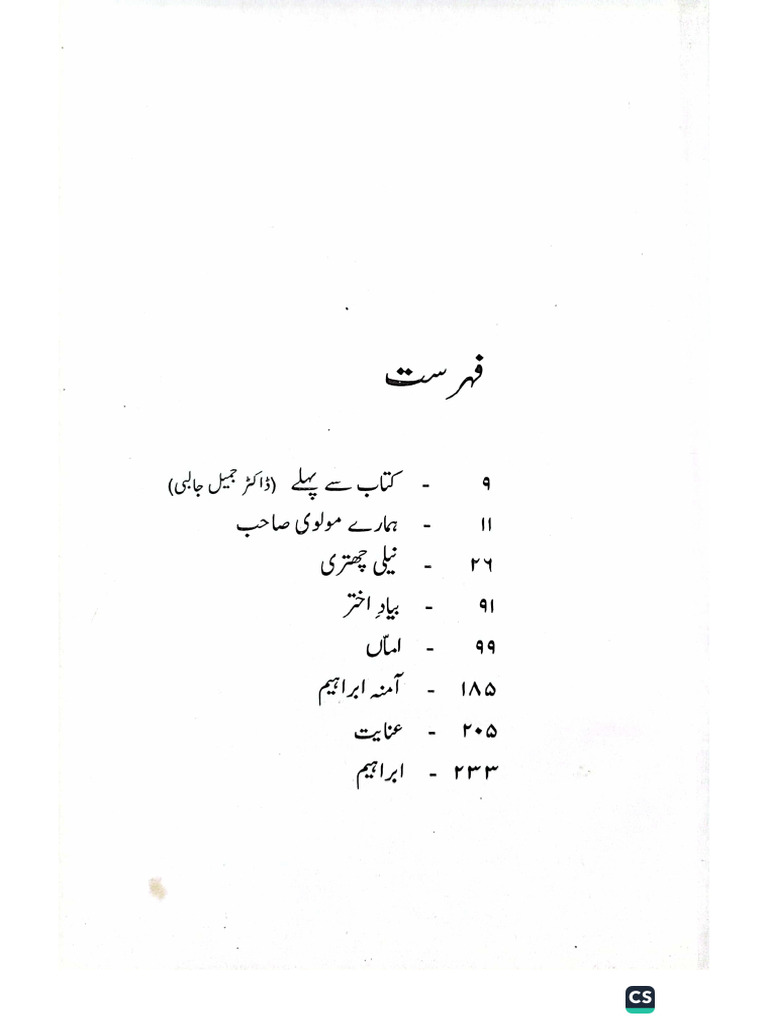 فہرست
۹ - کتاب سے پہلے (ڈاکٹر جمیل جالبی)
۱۱ - ہمارے مولوی صاحب
۲۶ - نیلی چھتری
۹۱ - بیادِ اختر
۹۹ - امّاں
۱۸۵ - آمنہ ابراہیم
۲۰۵ - عنایت
۲۳۳ - ابراہیم
CS